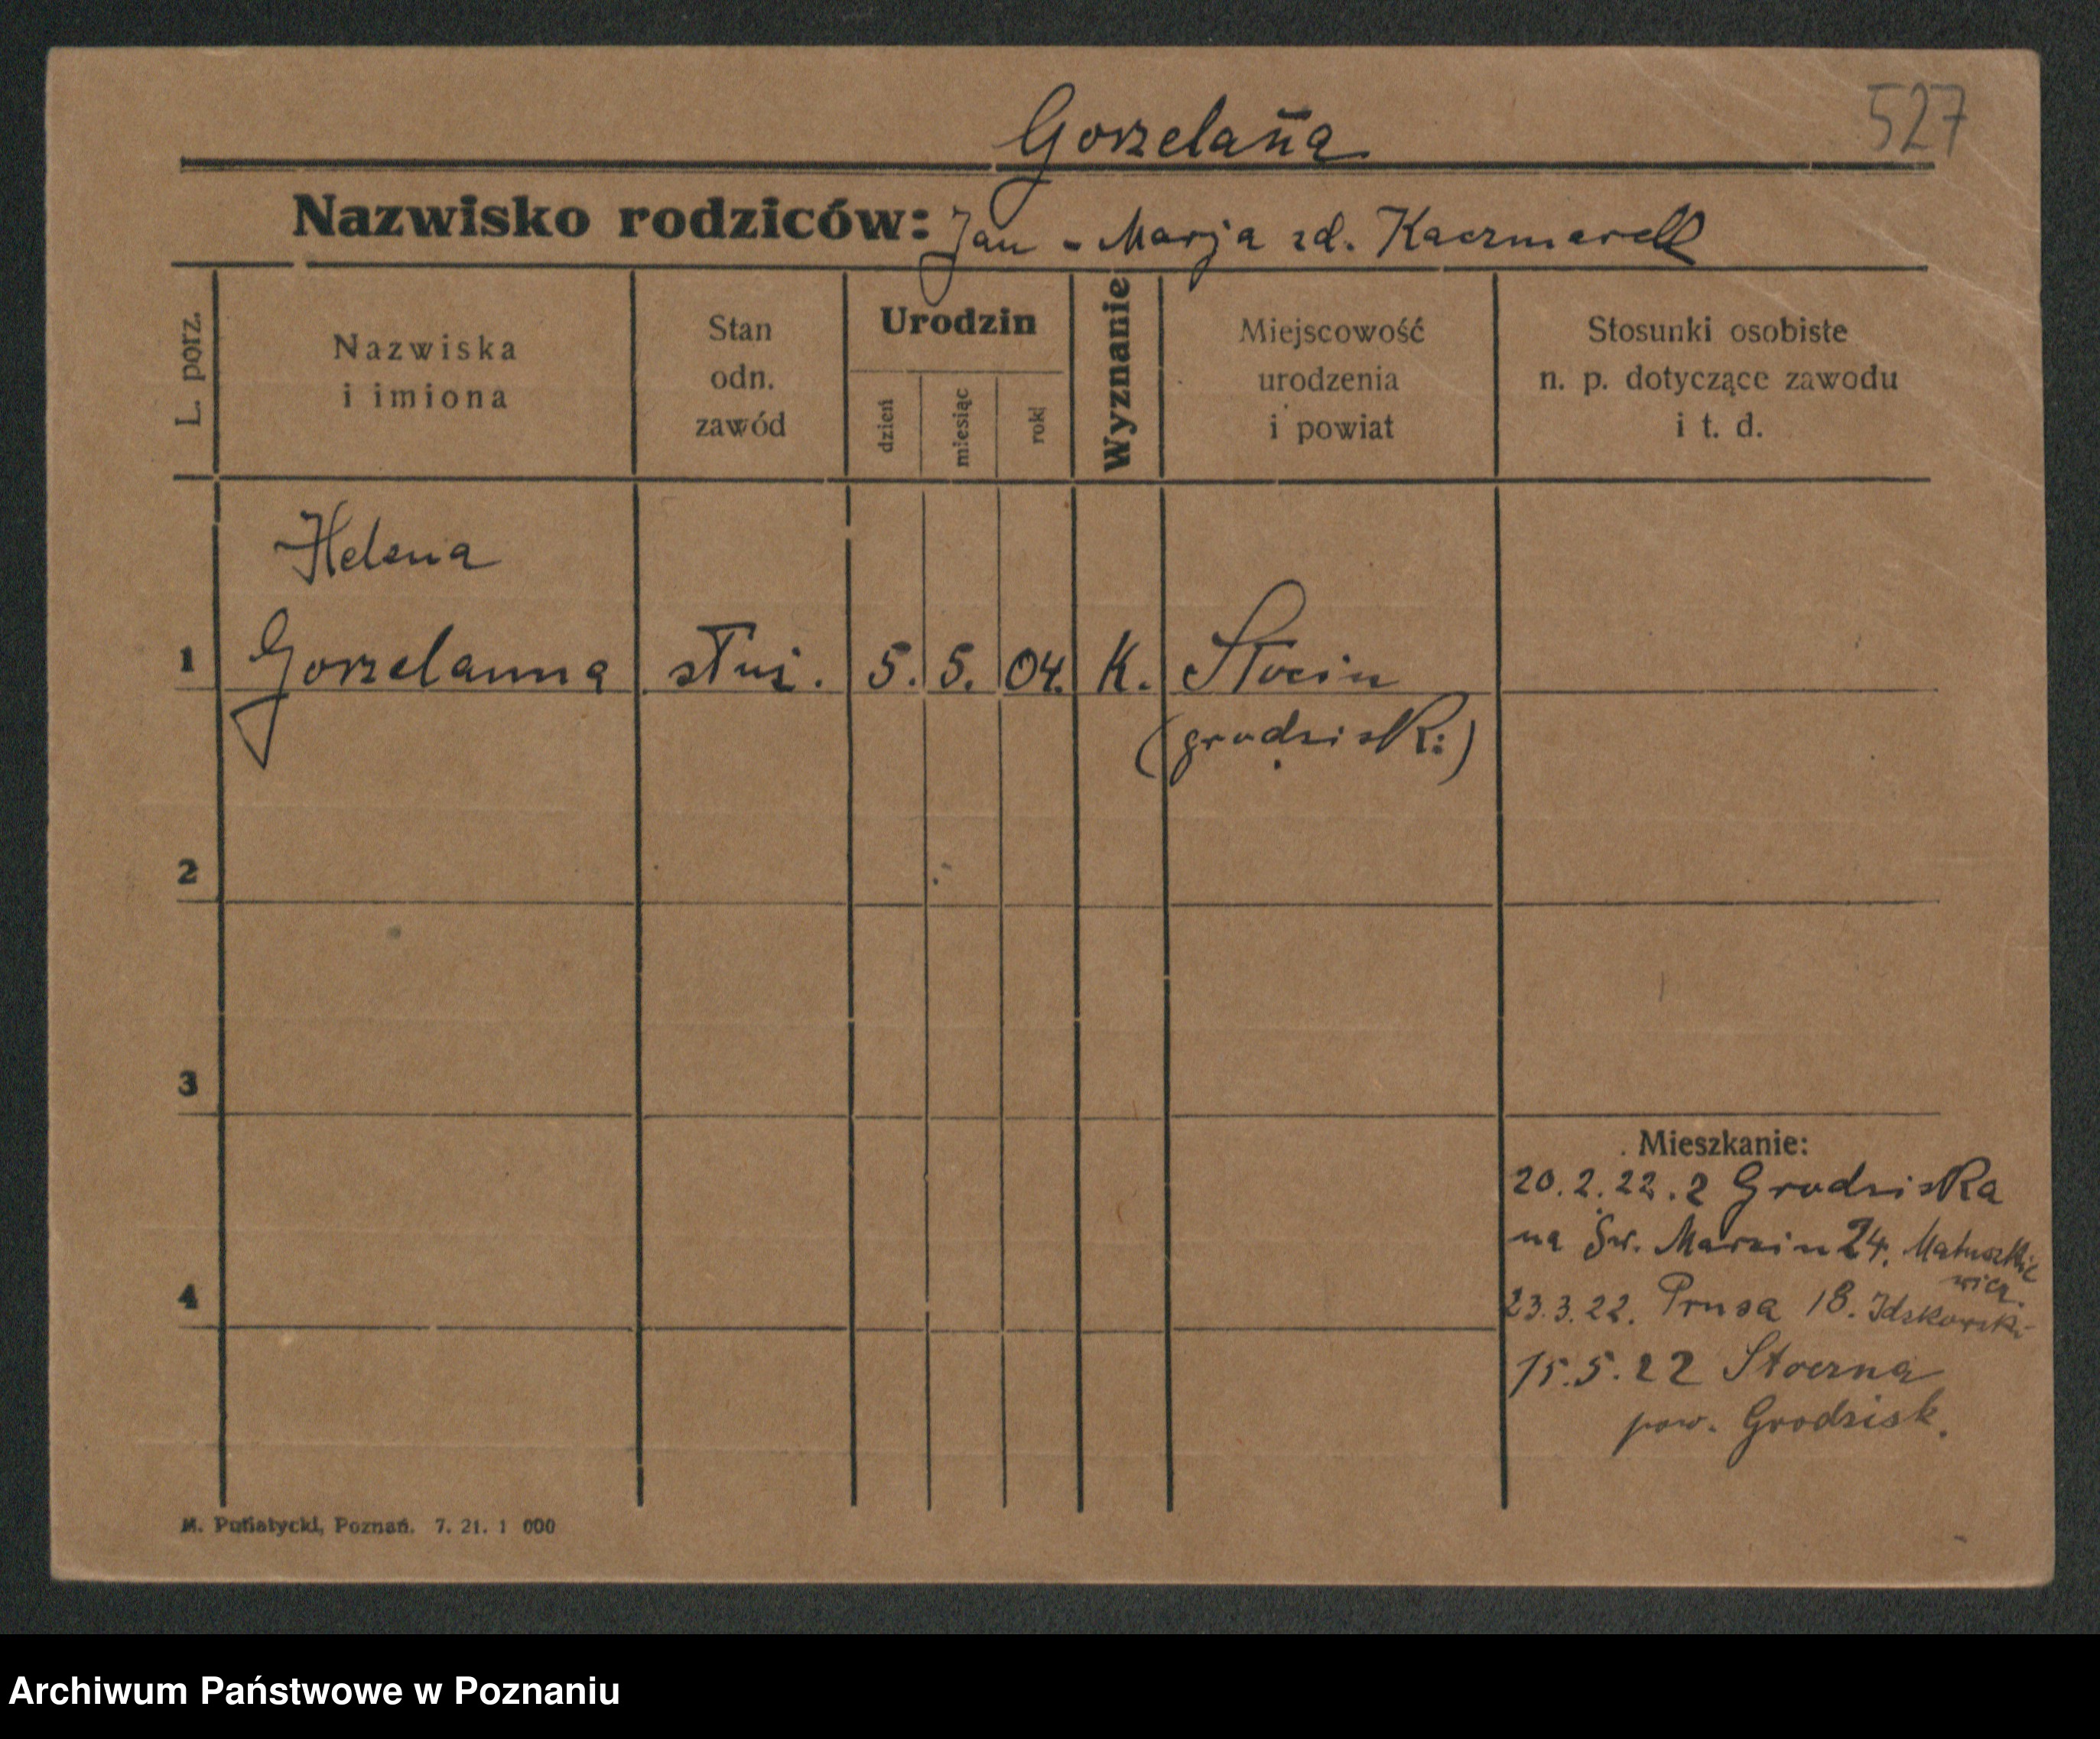 527
Gorzelaña
Nazwisko rodziców: Jan - Marja zd. Kaczmarek
L. porz.
Nazwiska
i imiona
Stan
odn.
zawód
Urodzin
dzień
miesiąc
rok
Wyznanie
Miejscowość
urodzenia
i powiat
Stosunki osobiste
n. p. dotyczące zawodu
i t. d.
Helena
1 Gorzelanna służ. 5. 5. 04. K.
(grodzisk:)
2
3
4
Mieszkanie:
20.2.22. z Grodziska
na Św. Marcin 24. Matuszkie
wicz.
23.3.22. Prusa 18.
15.5.22
pow. Grodzisk.
M. Putiatycki, Poznań. 7. 21. 1 000
Archiwum Państwowe w Poznaniu